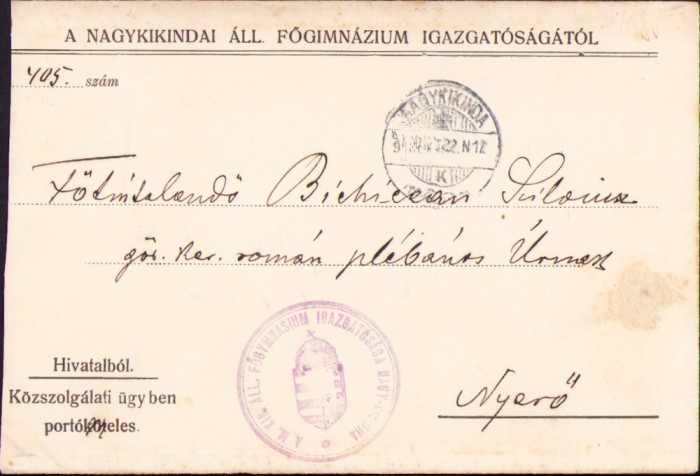 A NAGYKIKINDAI ÁLL. FŐGIMNÁZIUM IGAZGATÓSÁGÁTÓL
405. szám
NAGYKIKINDA
22. N12
K
Főtisztelendő
gör. ker. román plébános Úrnak
A. M. KIR. ÁLL. FŐGYMNASIUM IGAZGATÓSÁGA NAGY-KIKINDA
Hivatalból.
Közszolgálati ügyben
portóköteles.
Nyerő